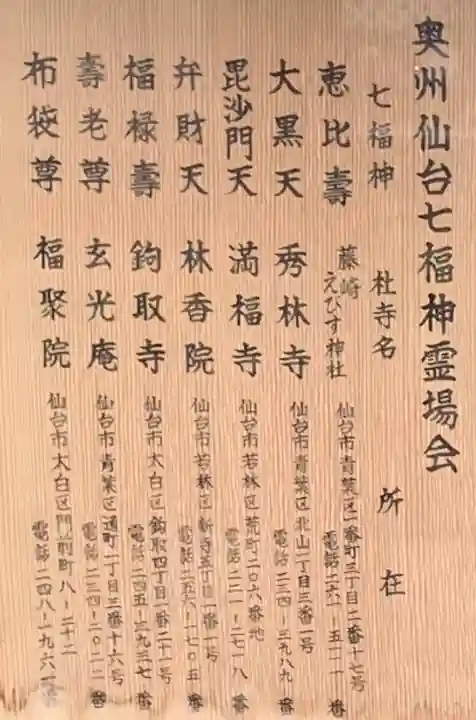 奥州仙台七福神霊場会
七福神 社寺名 所在
恵比壽 藤崎えびす神社 仙台市青葉区一番町三丁目二番十七号
電話二六一ー五一一一番
大黒天 秀林寺 仙台市青葉区北山一丁目三番一号
電話二三四ー三九八九番
毘沙門天 満福寺 仙台市若林区荒町二〇六番地
電話二二一ー二七一八番
弁財天 林香院 仙台市若林区新寺五丁目一番一号
電話二五六ー一七〇五番
福禄壽 鉤取寺 仙台市太白区鈎取四丁目一番二十一号
電話二四五ー三九三七番
壽老尊 玄光庵 仙台市青葉区通町一丁目三番十六号
電話二三四ー〇二一二番
布袋尊 福聚院 仙台市太白区門前町八ー二十二
電話二四八ー一九六一番